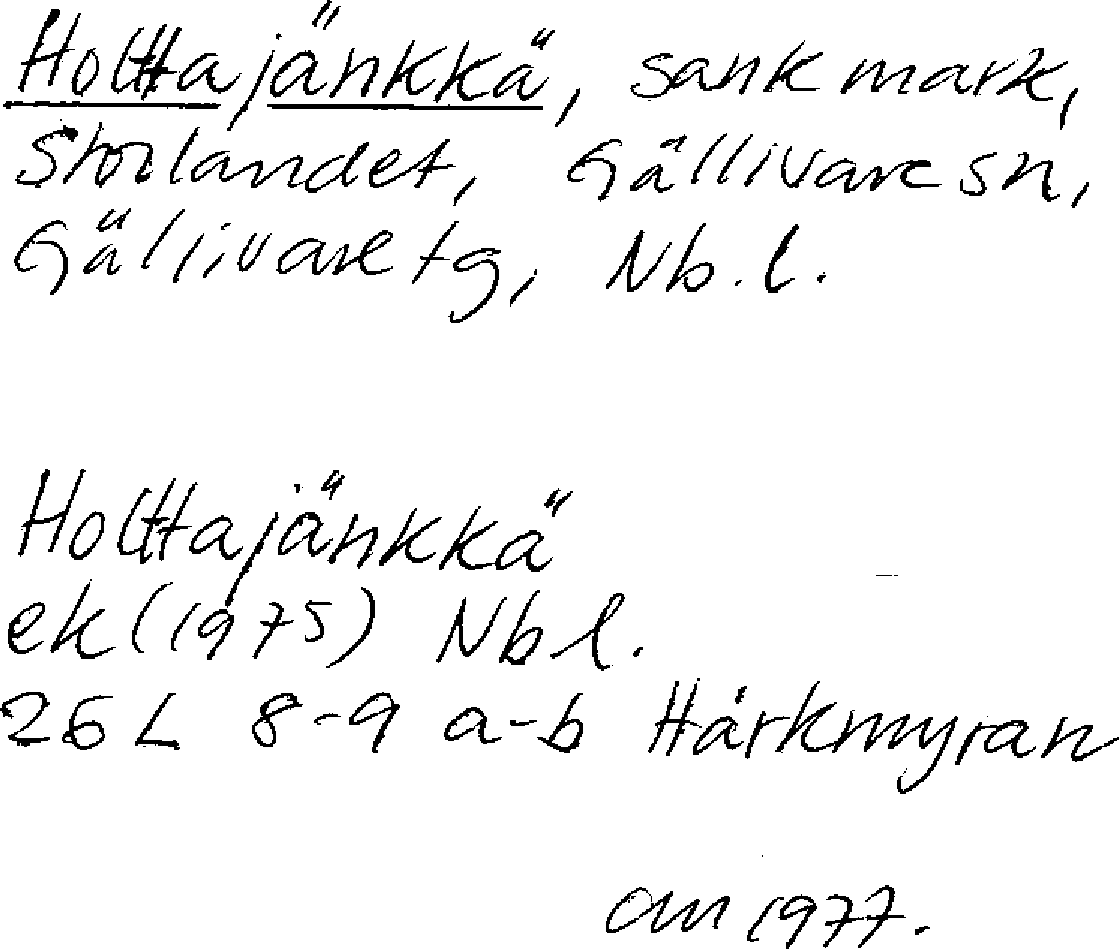 Holttajänkkä, sank mark,
Storlandet, Gällivare sn,
Gällivare tg, Nb.l.
Holttajänkkä
ek (1975) Nb l.
26 L 8-9 a-b Hárkmyran
1977.